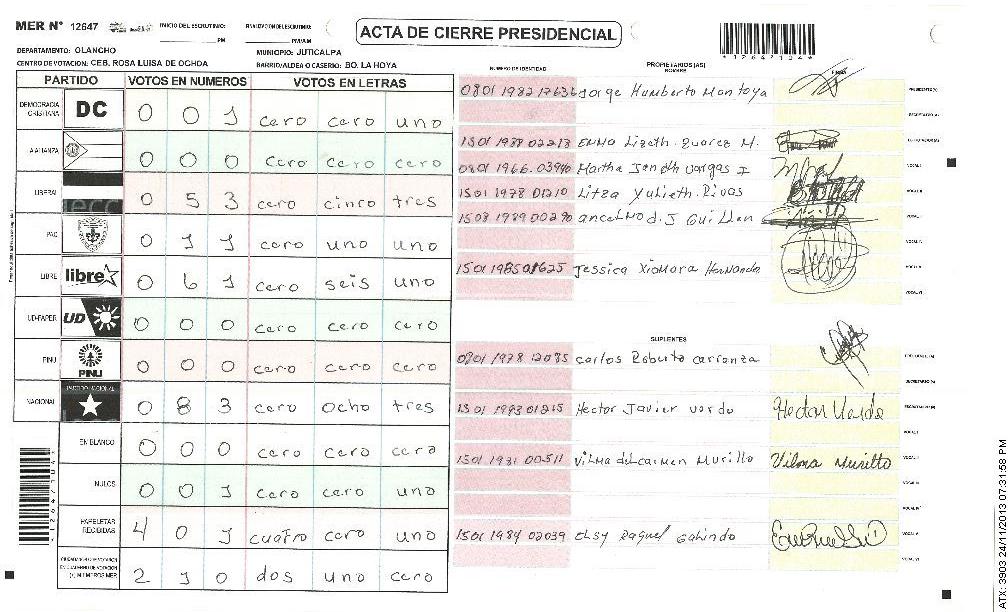 MER N° 12647 INICIO DEL ESCRUTINIO: ______ PM FINALIZACION DEL ESCRUTINIO: ______ PM/AM
ACTA DE CIERRE PRESIDENCIAL
*12647104*
DEPARTAMENTO: OLANCHO MUNICIPIO: JUTICALPA
CENTRO DE VOTACION: CEB. ROSA LUISA DE OCHOA BARRIO/ALDEA O CASERIO: BO. LA HOYA
PARTIDO VOTOS EN NUMEROS VOTOS EN LETRAS
DEMOCRACIA CRISTIANA DC 0 0 1 cero cero uno
ALIANZA 0 0 0 cero cero cero
LIBERAL 0 5 3 cero cinco tres
PAC 0 1 1 cero uno uno
LIBRE libre 0 6 1 cero seis uno
UD-FAPER UD 0 0 0 cero cero cero
PINU PINU 0 0 0 cero cero cero
NACIONAL PARTIDO NACIONAL 0 8 3 cero ocho tres
EN BLANCO 0 0 0 cero cero cero
NULOS 0 0 1 cero cero uno
PAPELETAS RECIBIDAS 4 0 1 cuatro cero uno
2 1 0 dos uno cero
NUMERO DE IDENTIDAD PROPIETARIOS (AS) NOMBRE FIRMA
0801 1982 17636 Jorge Humberto Montoya PRESIDENTE(A)
SECRETARIO(A)
1501 1988 02213 Emma Lizeth Suarez M.
0801 1966 03940 Martha Janeth Vargas I VOCAL I
1501 1978 01210 Litza Yulieth Rivas VOCAL II
1503 1989 00290 ancelmo d.J Guillen
VOCAL IV
1501 1985 01625 Jessica Xiomara Hernandez VOCAL V
VOCAL VI
SUPLENTES
0801 1978 12085 Carlos Roberto Carranza
SECRETARIO(A)
1501 1993 01215 Hector Javier Verde Hector Verde
VOCAL I
1501 1981 00511 Vilma del Carmen Murillo Vilma Murillo VOCAL II
VOCAL III
VOCAL IV
1501 1984 02039 Elsy Raquel Galindo VOCAL V
VOCAL VI
ATX: 3903 24/11/2013 07:31:58 PM